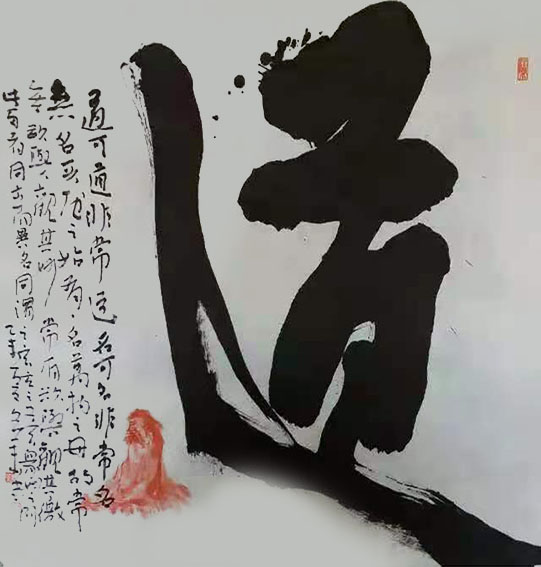 道
道可道非常道名可名非常名
無名天地之始有名萬物之母故常
無欲觀其妙常有欲觀其徼
此兩者同出而異名同謂之玄玄之又玄眾妙之門